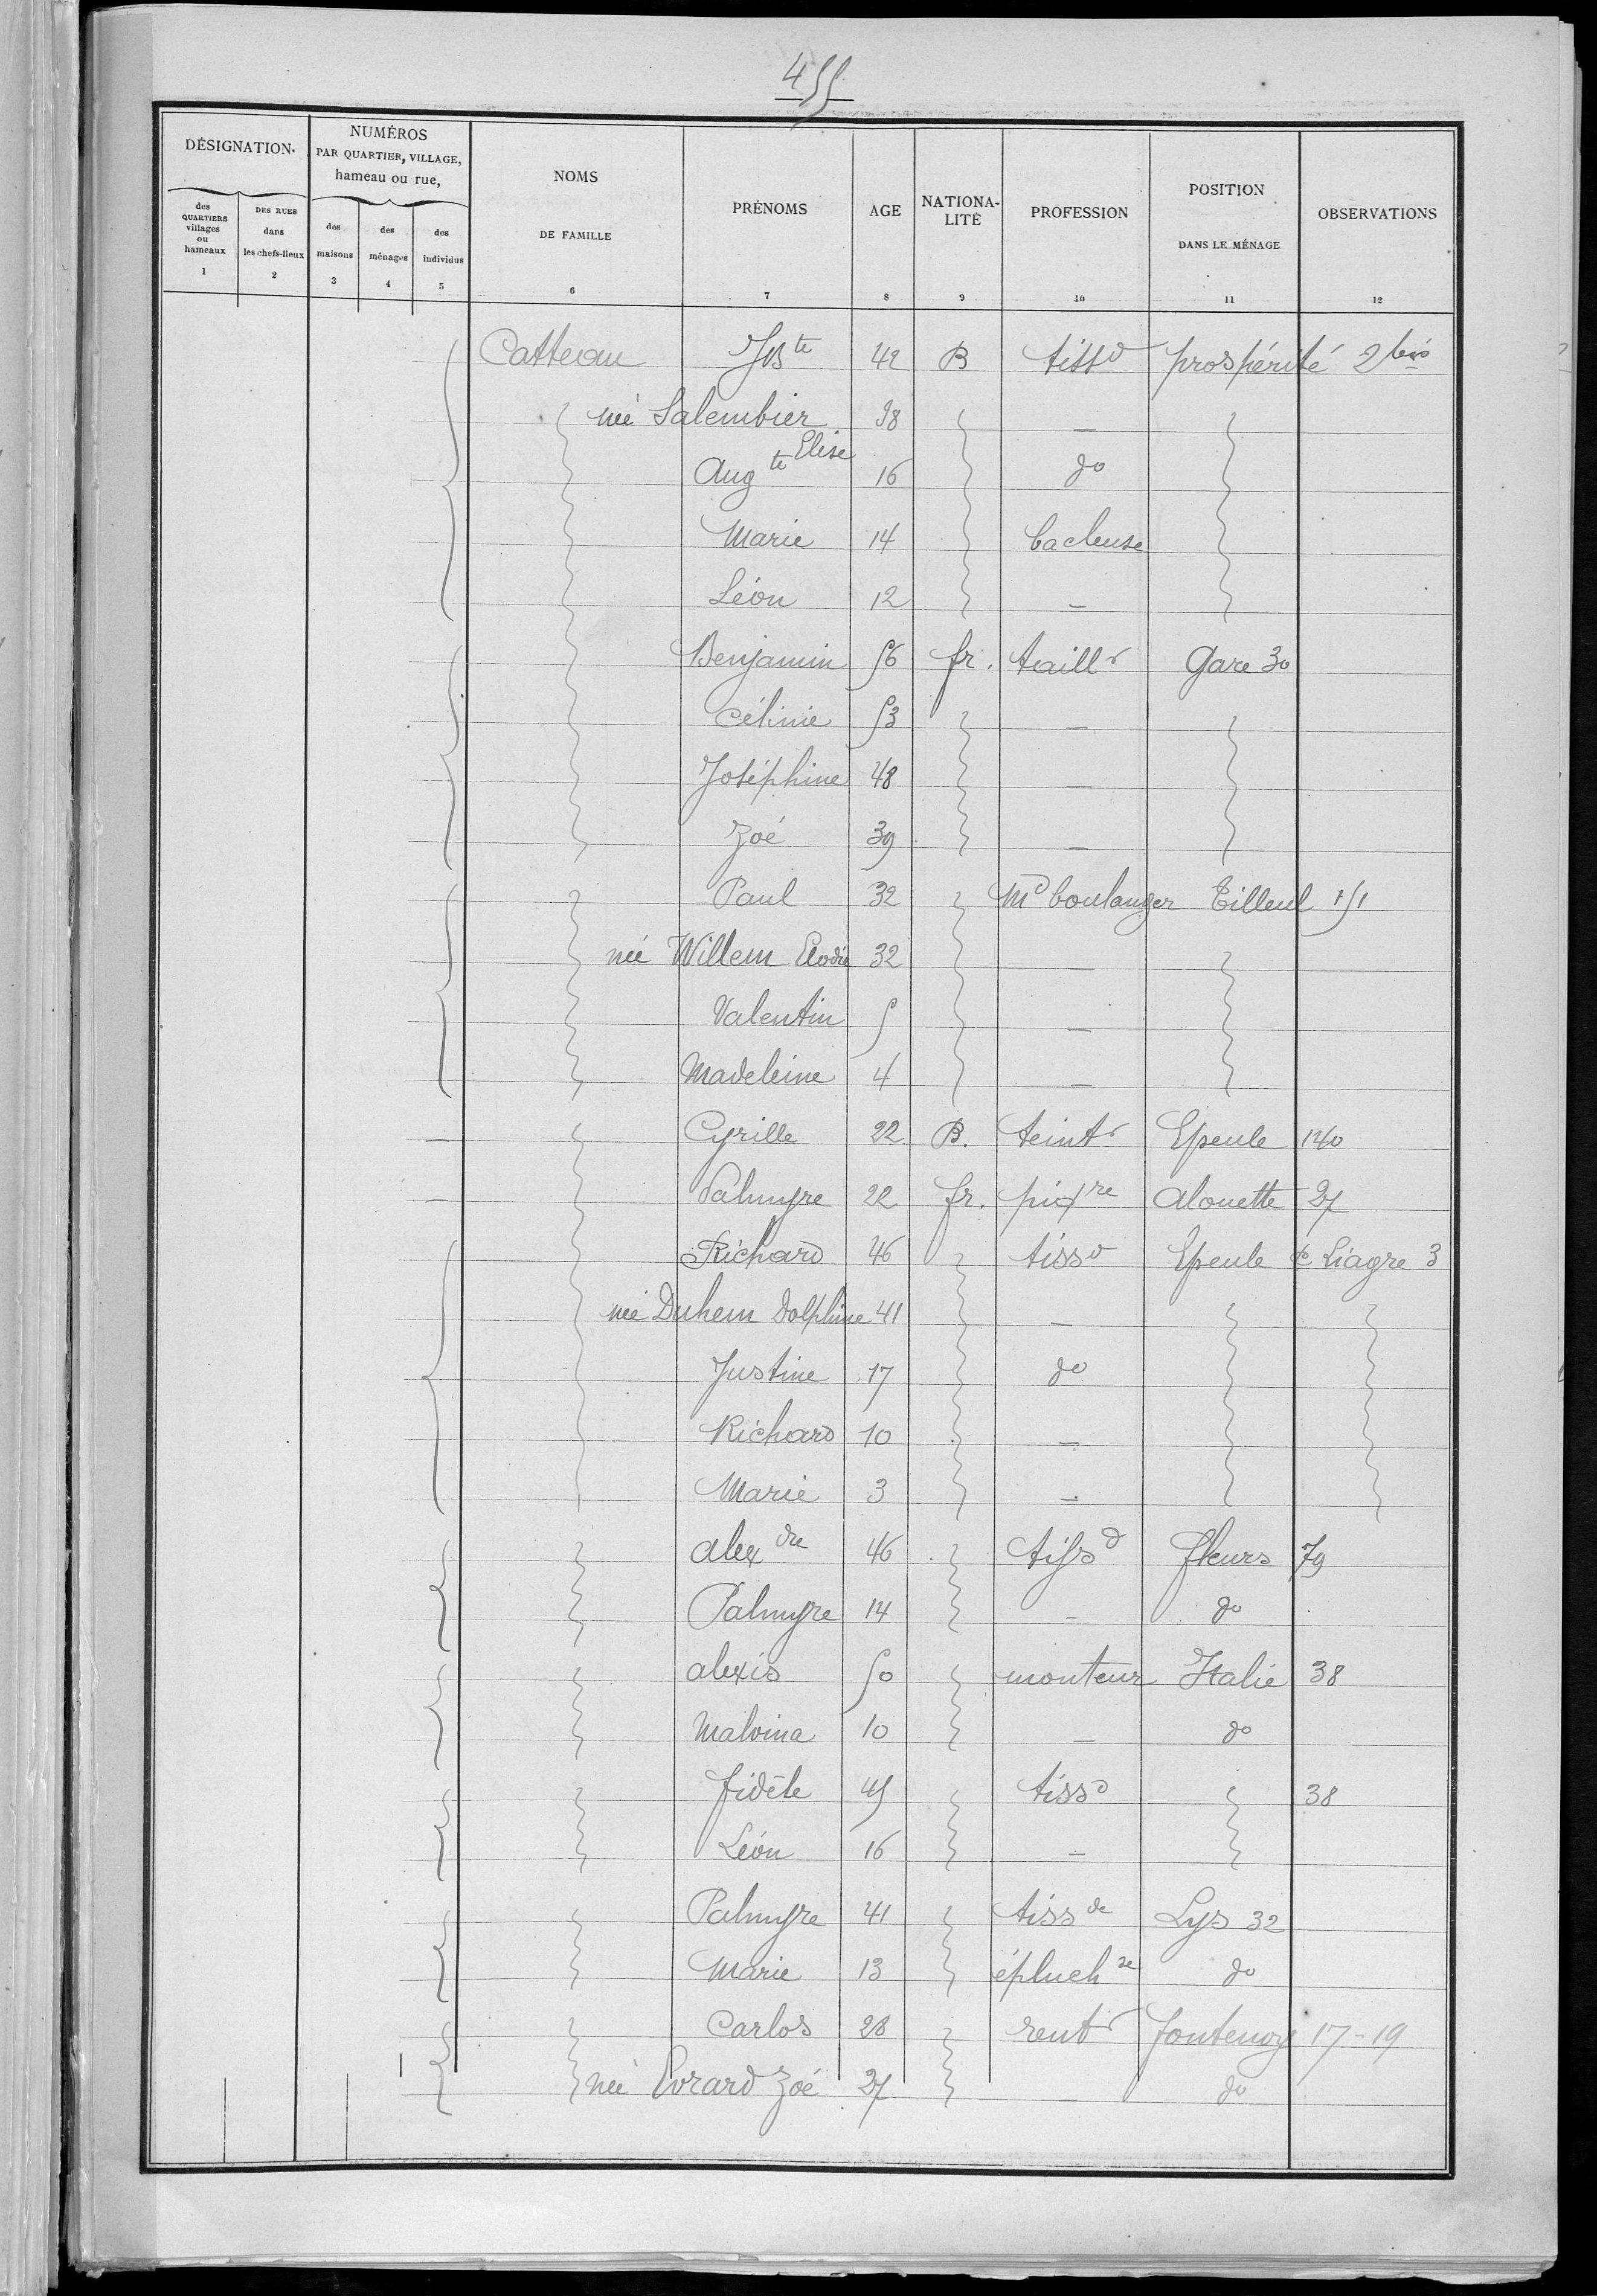 455
DÉSIGNATION.
NUMÉROS
PAR QUARTIER, VILLAGE,
hameau ou rue,
NOMS
DE FAMILLE
PRÉNOMS
AGE
NATIONA-
LITÉ
PROFESSION
POSITION
DANS LE MÉNAGE
OBSERVATIONS
des
QUARTIERS
villages
ou
hameaux
DES RUES
dans
les chefs-lieux
des
maisons
des
ménages
des
individus
1 2 3 4 5 6 7 8 9 10 11 12
Catteau JBte 42 B tissd prospérité 2 bis
née Salembier 38 —
Elise
Augte 16 do
Marie 14 bacleuse
Léon 12 —
Benjamin 56 fr. taillr Gare 30
Célinie 53 —
Joséphine 48 —
Zoé 39 —
Paul 32 Md boulanger Tilleul 151
née Willem Elodie 32 —
Valentin 5 —
Madeleine 4 —
— Cyrille 22 B. teintr Epeule 140
— Palmyre 22 fr. piqre Alouette 27
Richard 46 tissd Epeule c Liagre 3
née Duhem Dolphine 41 —
Justine 17 do
Richard 10 —
Marie 3 —
alexdre 46 tissd fleurs 79
Palmyre 14 — do
alexis 50 monteur Italie 38
Malvina 10 — do
fidèle 45 tissd 38
Léon 16 —
Palmyre 41 tissde Lys 32
Marie 13 épluchse do
Carlos 28 rentr fontenoy 17-19
née Evrard Zoé 27 — do